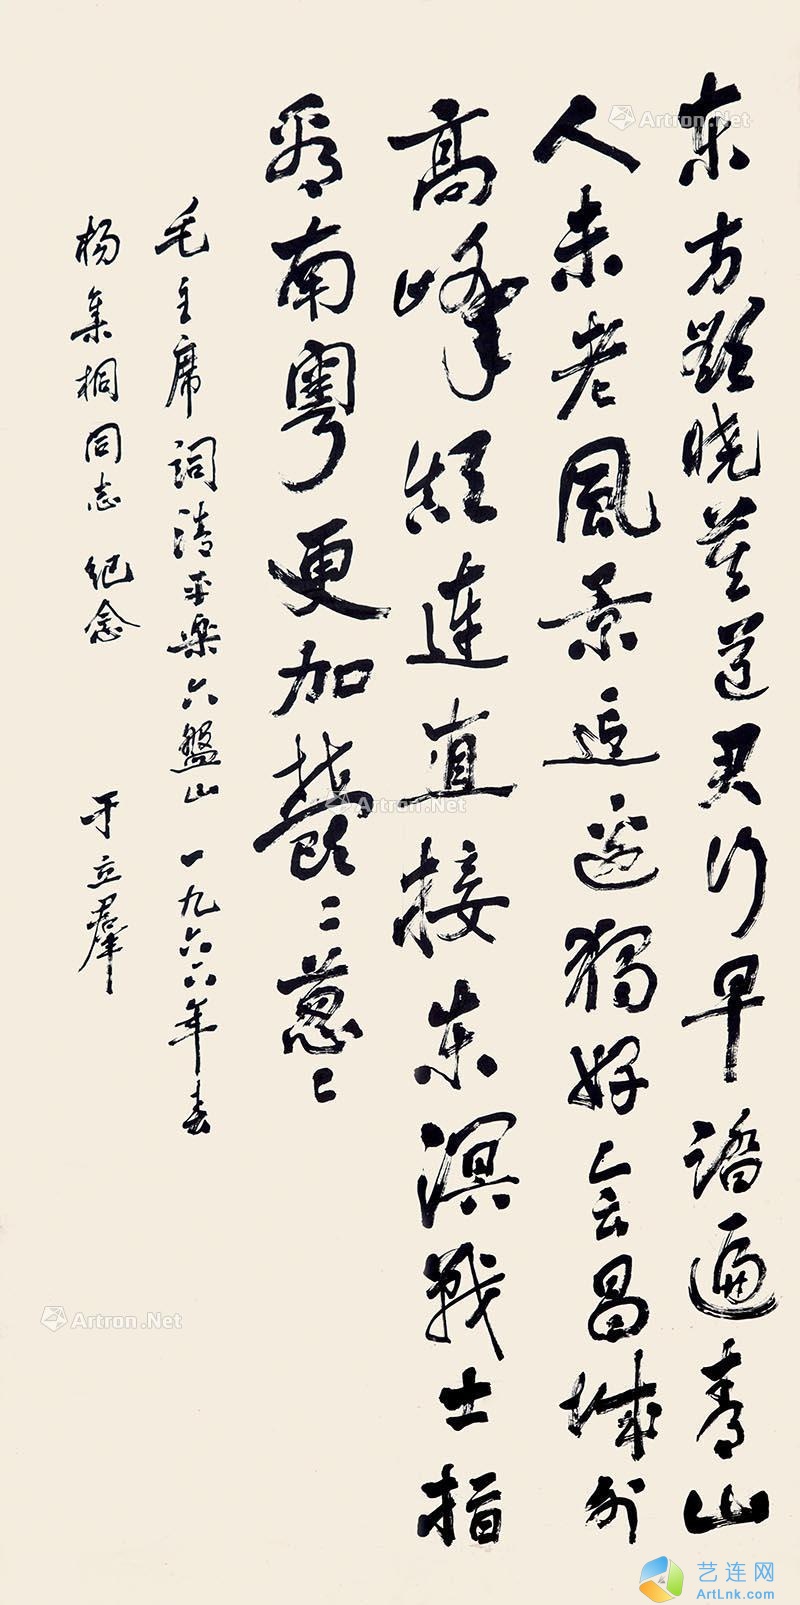 东方欲晓莫道君行早踏遍青山
人未老風景這邊獨好会昌城外
高峰顛連直接东溟戰士指
看南粤更加鬱〻葱〻
毛主席词清平樂六盤山 一九六六年春
杨集桐同志 纪念 于立群
Artron.Net
Artron.Net
Artron.Net
艺连网
ArtLnk.com